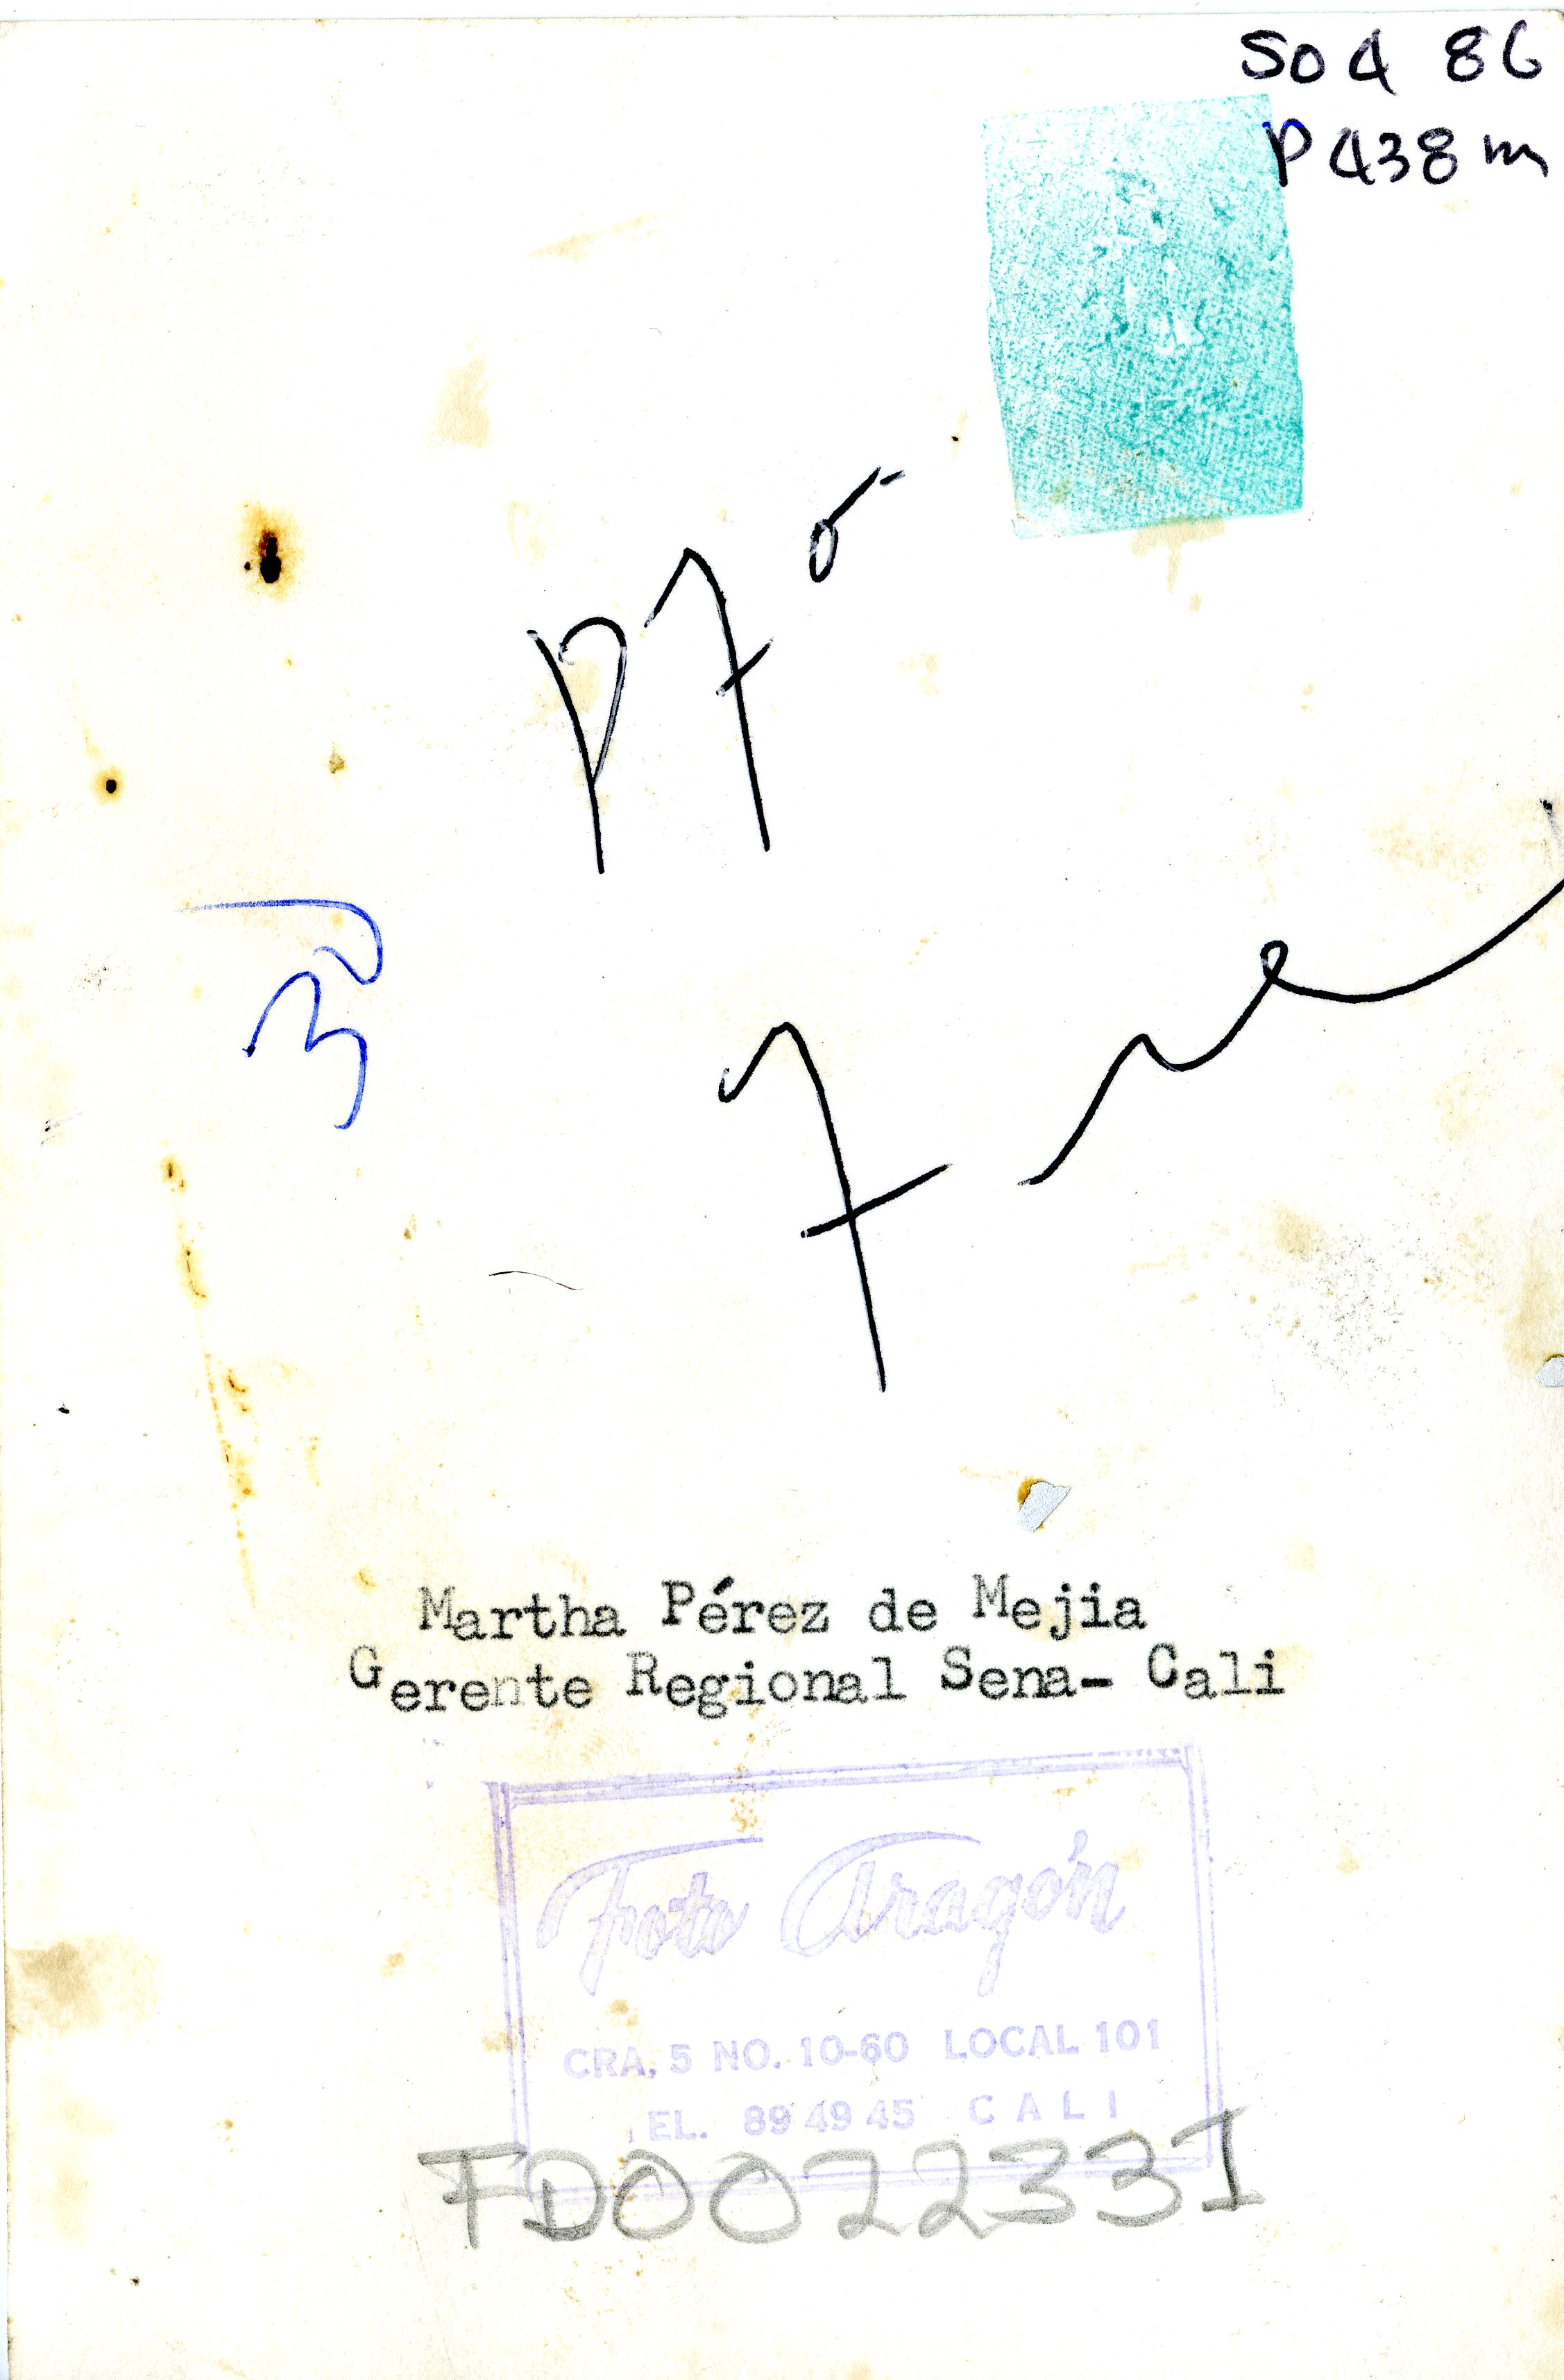 S04 86
P438m
Martha Pérez de Mejia
Gerente Regional Sena- Cali
Foto Aragón
CRA. 5 NO. 10-60 LOCAL 101
EL. 89 49 45 CALI
FD0022331